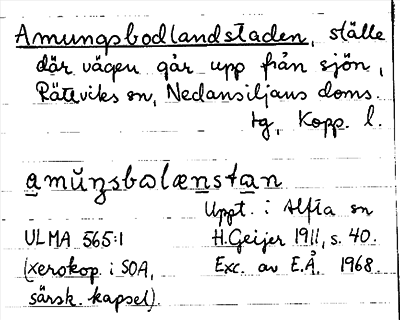 Amungsbodlandstaden, ställe
där vägen går upp från sjön,
Rättviks sn, Nedansiljans doms.
tg, Kopp. l.
amŭŋsbωlænstan
Uppt. i Alfta sn
ULMA 565:1 H.Geijer 1911, s. 40.
(xerokop. i SOA, Exc. av E.Å. 1968.
särsk. kapsel).